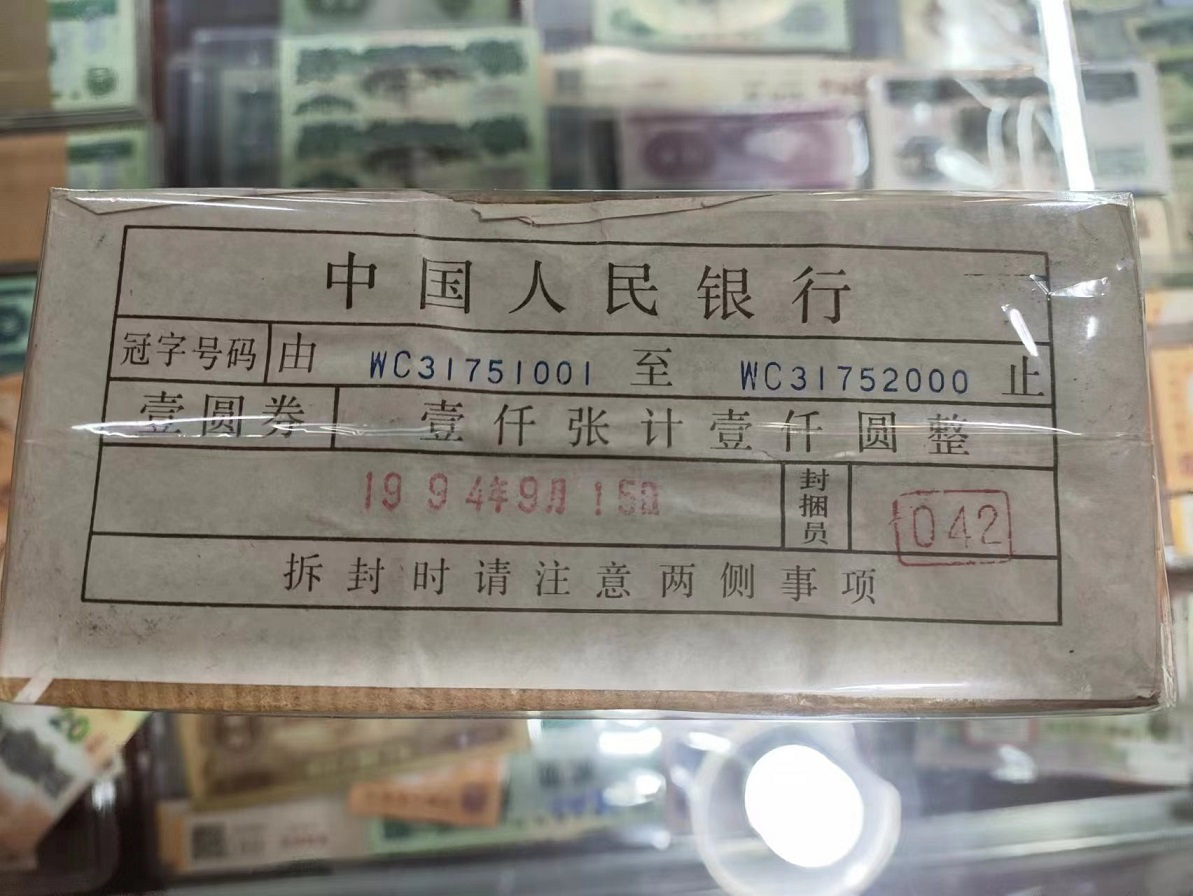 中国人民银行
冠字号码 由 WC31751001 至 WC31752000 止
壹圆券 壹仟张计壹仟圆整
1994年9月15日 封捆员 1042
拆封时请注意两侧事项